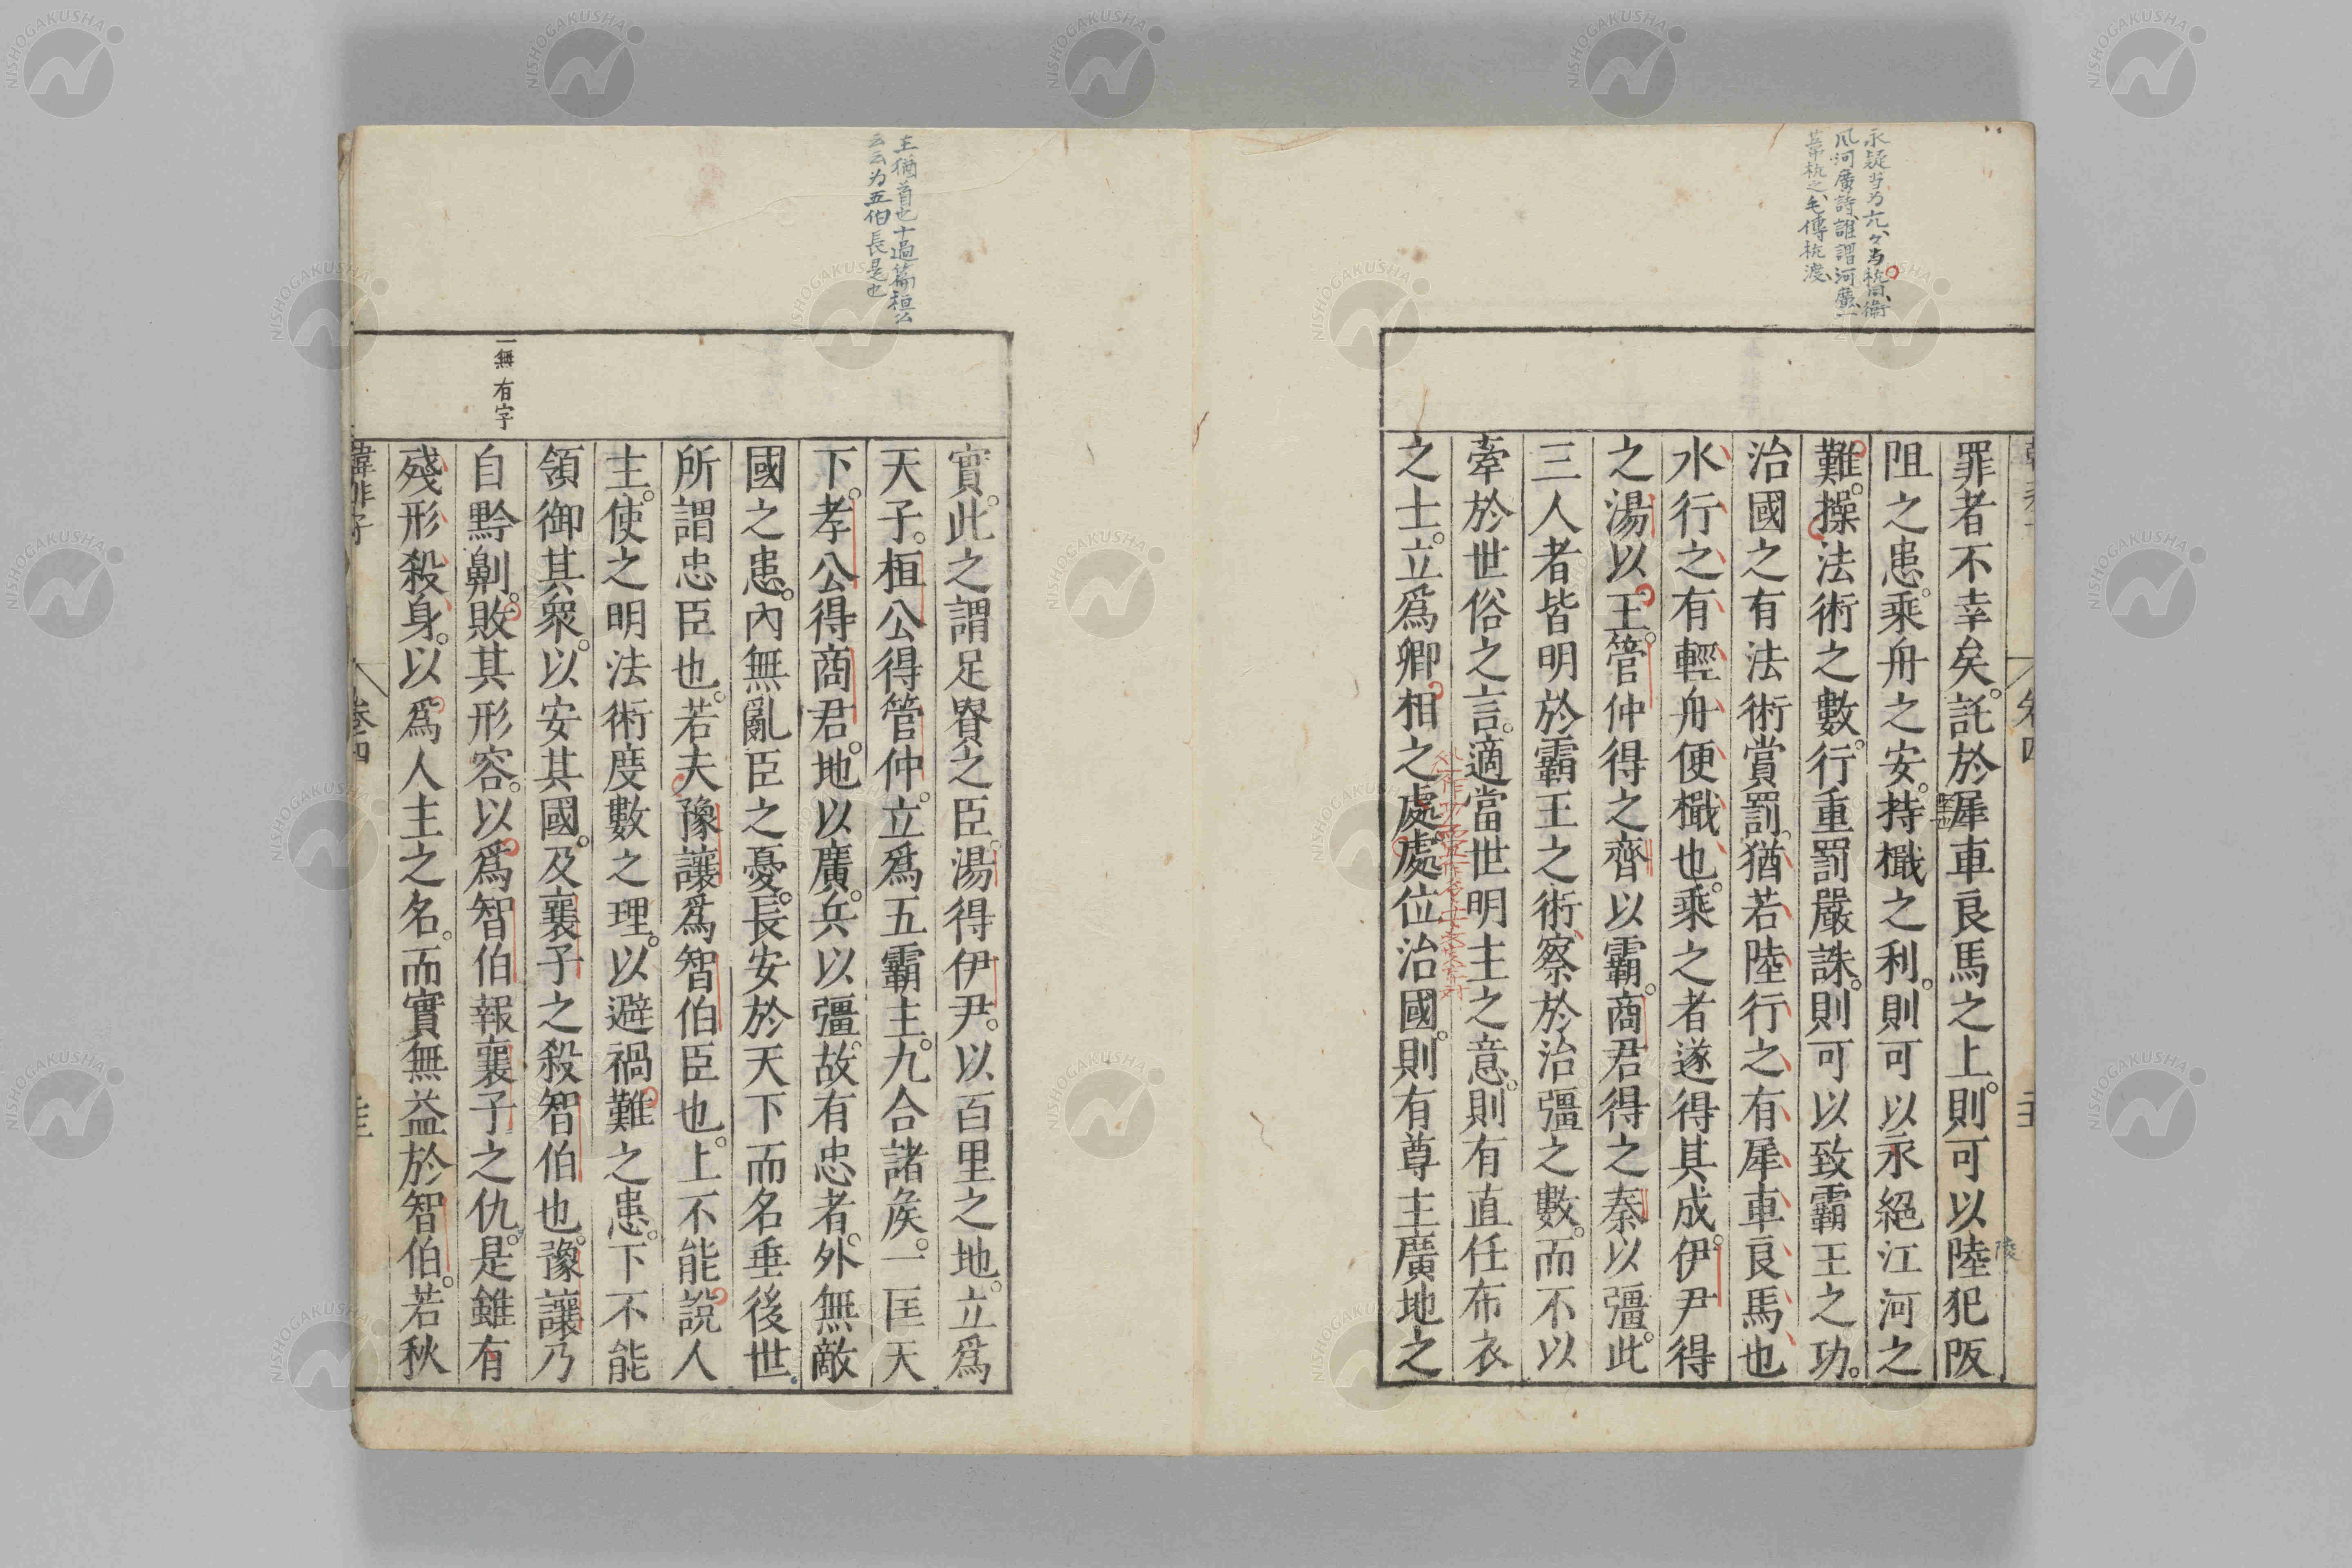 永疑当為亢々与杭同衛
風河廣詩誰謂河廣一
葦杭之毛傳杭渡
罪者不幸矣。託於犀車良馬之上。則可以陸犯阪
阻之患。乘舟之安。持檝之利。則可以永絕江河之
難。操法術之數。行重罰嚴誅。則可以致霸王之功。
治國之有法術賞罰。猶若陸行之有犀車良馬也
水行之有輕舟便檝也。乘之者遂得其成。伊尹得
之湯以王。管仲得之齊以霸。商君得之秦以彊。此
三人者皆明於霸王之術。察於治彊之數。而不以
牽於世俗之言。適當世明主之意。則有直任布衣
之士。立爲卿相之處。處位治國。則有尊主廣地之
主猶首也十過篇桓公
云云为五伯長是也
實。此之謂足貴之臣。湯得伊尹。以百里之地。立爲
天子。桓公得管仲。立爲五霸主。九合諸侯。一匡天
下。孝公得商君。地以廣。兵以彊。故有忠者。外無敵
國之患。內無亂臣之憂。長安於天下而名垂後世
所謂忠臣也。若夫豫讓爲智伯臣也。上不能說人
主。使之明法術度數之理。以避禍難之患。下不能
領御其衆。以安其國。及襄子之殺智伯也。豫讓乃
一無有字
自黔劓。敗其形容。以爲智伯報襄子之仇。是雖有
殘形殺身。以爲人主之名。而實無益於智伯。若秋
韓非子
卷四